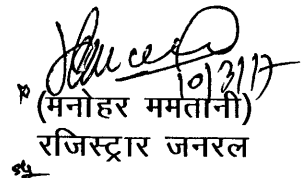 10/3/17
(मनोहर ममतानी)
रजिस्ट्रार जनरल